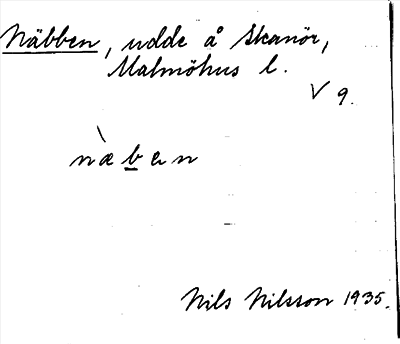 Näbben, udde å Skanör,
Malmöhus l.
V 9.
næ̀ben
Nils Nilsson 1935.